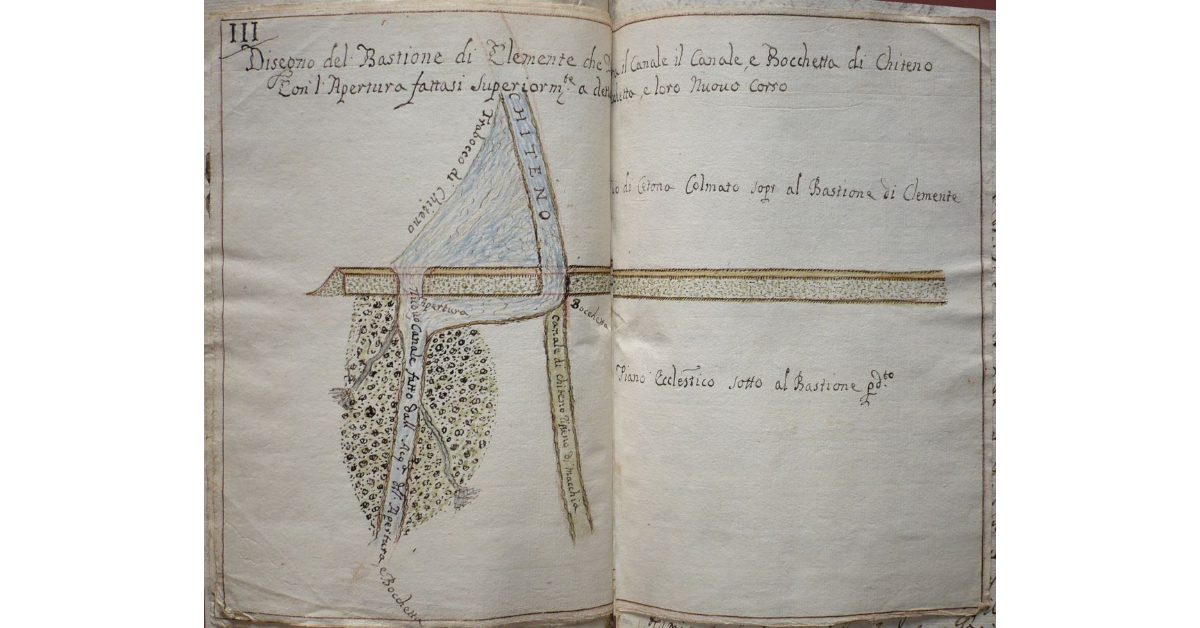 III
Disegno del Bastione di Clemente che il Canale il Canale, e Bocchetta di Chiteno
Con l'Apertura fattasi Superiorm.te a detta Bocchetta, e loro Nuouo Corso
CHITENO
Trabocco di Chiteno
di Cetona Colmato sopr al Bastione di Clemente
Apertura
Bocchetta
Nuouo Canale fatto dall' Acq. dell' Apertura, e Bocchetta
Canale di Chiteno Pieno di Macchia
Piano Ecclestico sotto al Bastione pd.to